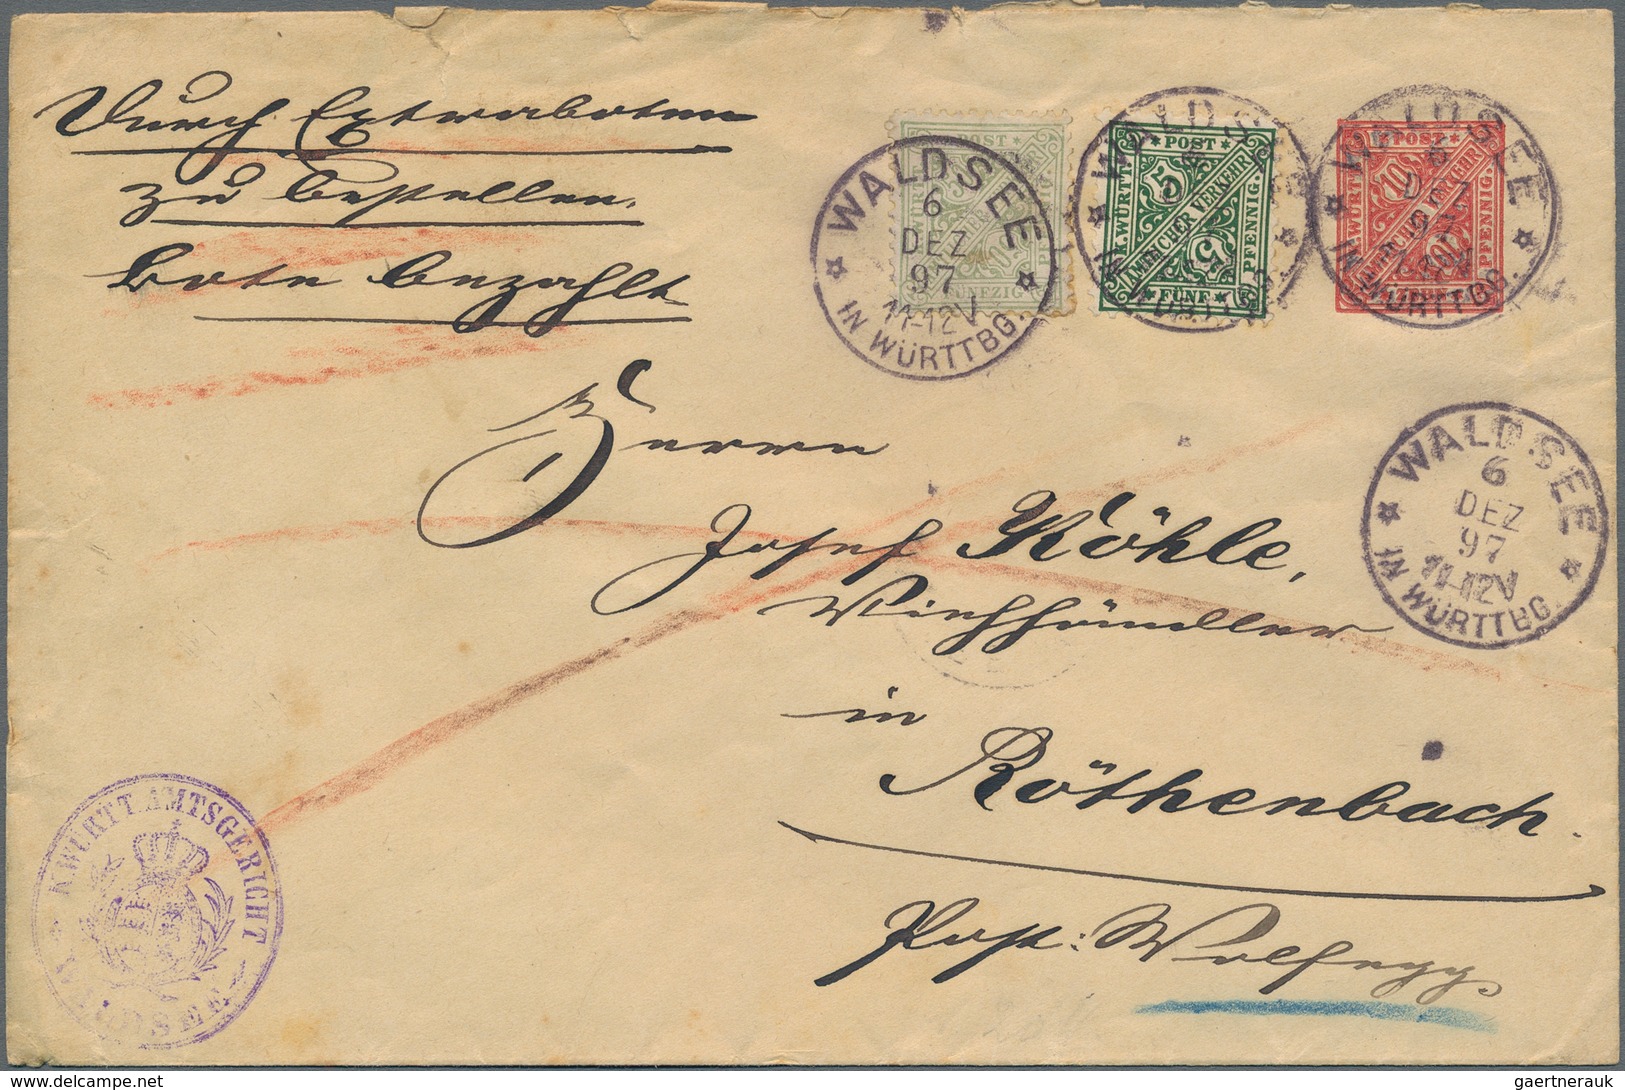 Durch Extraboten
zu bestellen.
Bote bezahlt
POST
FÜNFZIG
WALDSEE
6
DEZ
97
11-12V
IN WÜRTTBG.
POST
K.WÜRTT.
5
AMTLICHER VERKEHR
5
PFENNIG
FÜNF
WALDSEE
POST
K.WÜRTT.
10
10
PFENNIG.
ZEHN
WALDSEE
6
DEZ
97
IN WÜRTTBG.
WALDSEE
6
DEZ
97
11-12V
IN WÜRTTBG.
Herrn
Josef Köhle,
Viehhändler
in
Röthenbach.
Post: Wolfegg.
K.WÜRTT.AMTSGERICHT
WALDSEE
www.delcampe.net
gaertnerauk